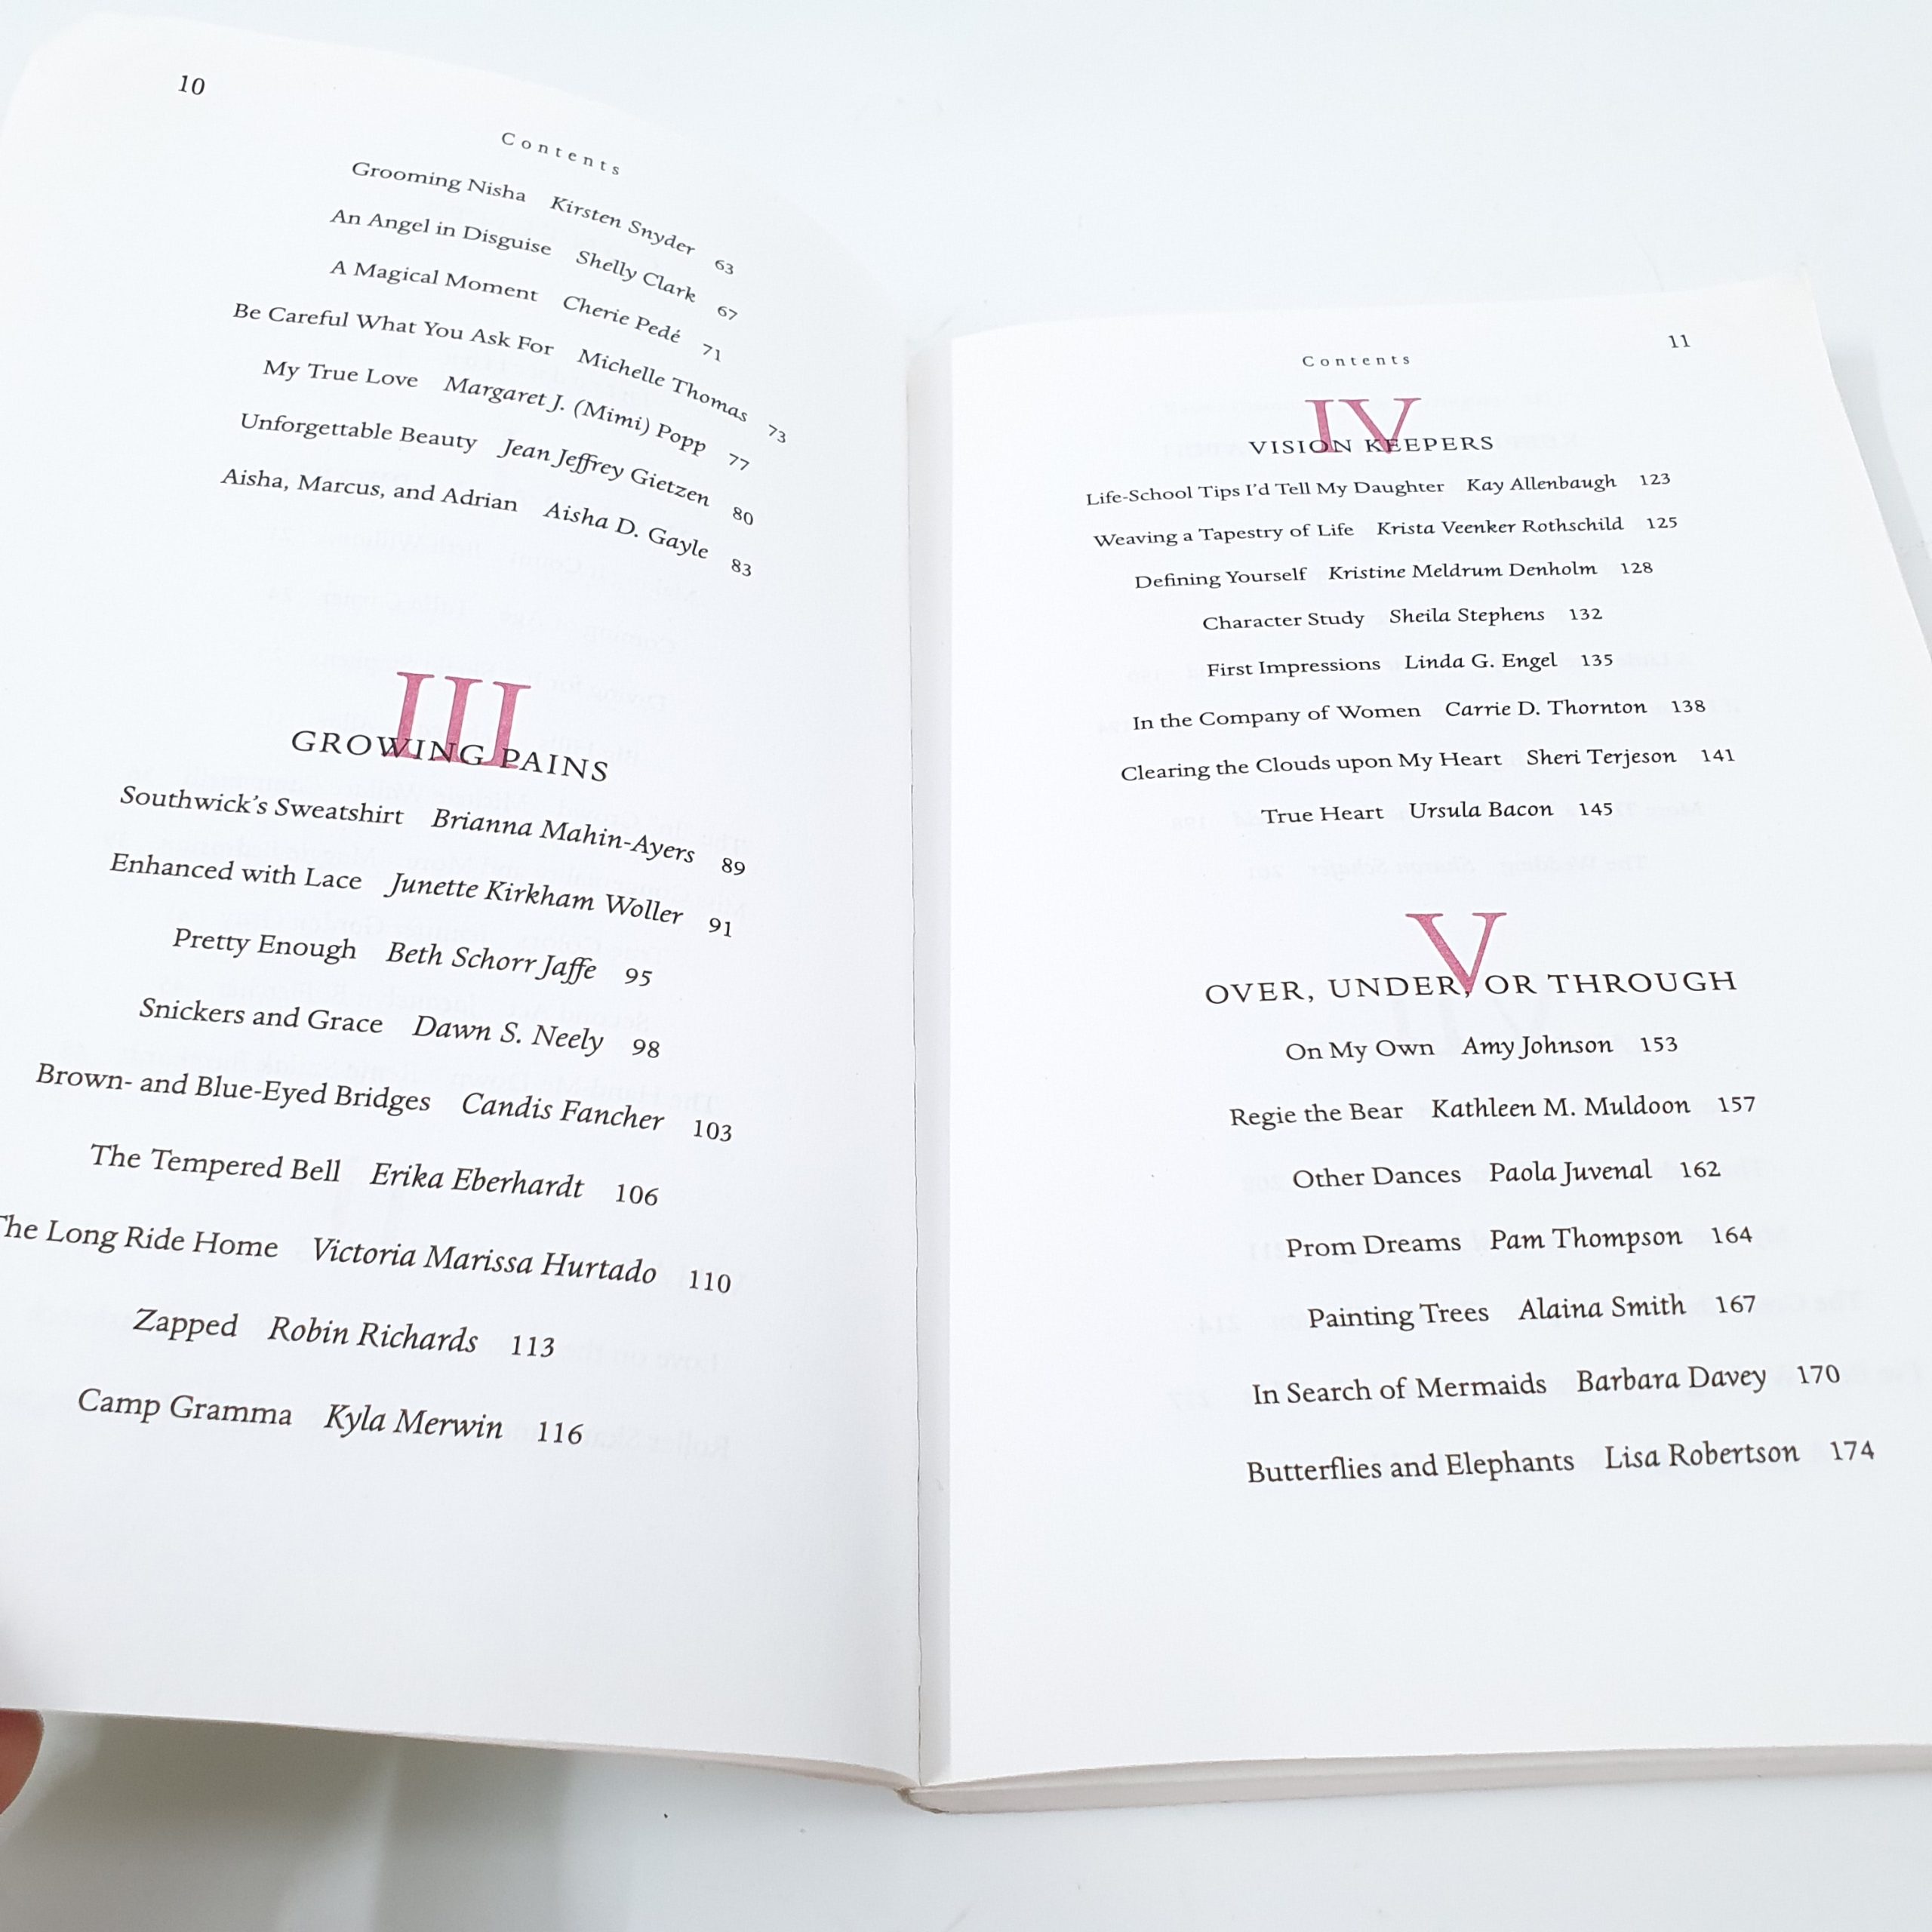 10
Contents
Grooming Nisha Kirsten Snyder 63
An Angel in Disguise Shelly Clark 67
A Magical Moment Cherie Pedé 71
Be Careful What You Ask For Michelle Thomas 73
My True Love Margaret J. (Mimi) Popp 77
Unforgettable Beauty Jean Jeffrey Gietzen 80
Aisha, Marcus, and Adrian Aisha D. Gayle 83
III
GROWING PAINS
Southwick's Sweatshirt Brianna Mahin-Ayers 89
Enhanced with Lace Junette Kirkham Woller 91
Pretty Enough Beth Schorr Jaffe 95
Snickers and Grace Dawn S. Neely 98
Brown- and Blue-Eyed Bridges Candis Fancher 103
The Tempered Bell Erika Eberhardt 106
The Long Ride Home Victoria Marissa Hurtado 110
Zapped Robin Richards 113
Camp Gramma Kyla Merwin 116
11
Contents
IV
VISION KEEPERS
Life-School Tips I'd Tell My Daughter Kay Allenbaugh 123
Weaving a Tapestry of Life Krista Veenker Rothschild 125
Defining Yourself Kristine Meldrum Denholm 128
Character Study Sheila Stephens 132
First Impressions Linda G. Engel 135
In the Company of Women Carrie D. Thornton 138
Clearing the Clouds upon My Heart Sheri Terjeson 141
True Heart Ursula Bacon 145
V
OVER, UNDER, OR THROUGH
On My Own Amy Johnson 153
Regie the Bear Kathleen M. Muldoon 157
Other Dances Paola Juvenal 162
Prom Dreams Pam Thompson 164
Painting Trees Alaina Smith 167
In Search of Mermaids Barbara Davey 170
Butterflies and Elephants Lisa Robertson 174